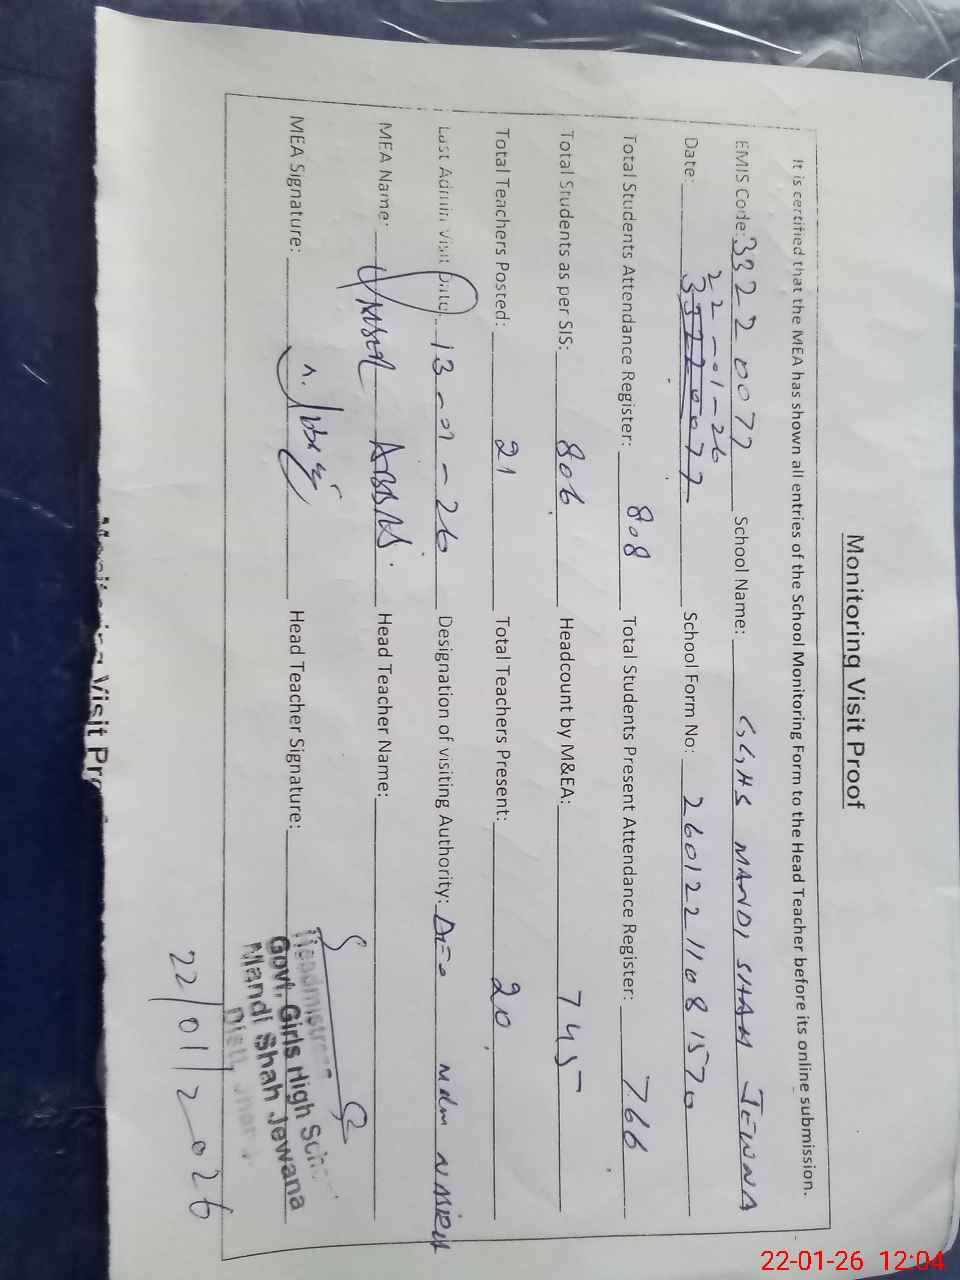 Monitoring Visit Proof
It is certified that the MEA has shown all entries of the School Monitoring Form to the Head Teacher before its online submission.
EMIS Code: 33220077 School Name: G,G,HS MANDI SHAH JEWNA
22-01-26
Date: 33220077 School Form No: 26012211081570
Total Students Attendance Register: 808 Total Students Present Attendance Register: 766
Total Students as per SIS: 806 Headcount by M&EA: 745
Total Teachers Posted: 21 Total Teachers Present: 20
Last Admin Visit Date: 13-01-26 Designation of visiting Authority: DEO Mdm
MEA Name: ABBAS Head Teacher Name:
MEA Signature: Head Teacher Signature:
Headmistress
Govt. Girls High School
Mandi Shah Jewana
22/01/2026
Monitoring Visit Pr
22-01-26 12:04